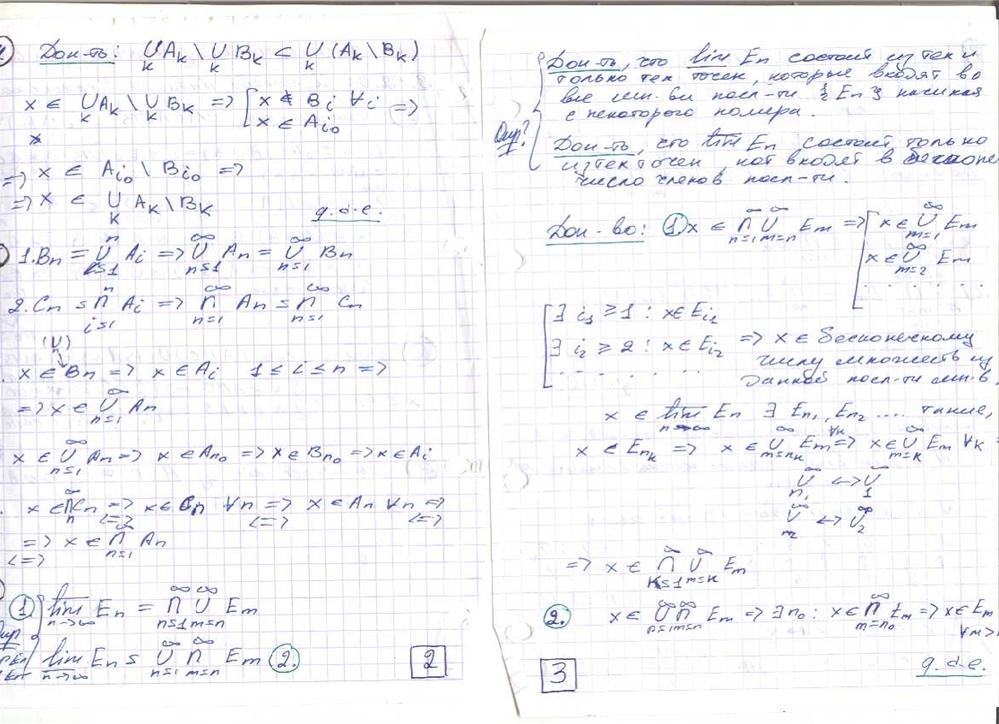 Док-ть: ∪_k A_k \ ∪_k B_k ⊂ ∪_k (A_k \ B_k)
x ∈ ∪_k A_k \ ∪_k B_k => [ x ∉ B_i ∀i
x ∈ A_{i_0} =>
=> x ∈ A_{i_0} \ B_{i_0} =>
=> x ∈ ∪_k A_k \ B_k
q.d.e.
1. B_n = ∪_{i=1}^n A_i => ∪_{n=1}^∞ A_n = ∪_{n=1}^∞ B_n
2. C_n = ∩_{i=1}^n A_i => ∩_{n=1}^∞ A_n = ∩_{n=1}^∞ C_n
(∪)
x ∈ B_n => x ∈ A_i 1 ≤ i ≤ n =>
=> x ∈ ∪_{n=1}^∞ A_n
x ∈ ∪_{n=1}^∞ A_n => x ∈ A_{n_0} => x ∈ B_{n_0} => x ∈ A_i
x ∈ ∩_n^∞ C_n => x ∈ C_n ∀n => x ∈ A_n ∀n =>
<=> <=> <=>
=> x ∈ ∩_{n=1}^∞ A_n
<=>
① lim_{n→∞} E_n = ∩_{n=1}^∞ ∪_{m=n}^∞ E_m
lim_{n→∞} E_n = ∪_{n=1}^∞ ∩_{m=n}^∞ E_m ②.
2
Док-ть, что lim E_n состоит из тех и
только тех точек, которые входят во
все мн-ва посл-ти {E_n} начиная
с некоторого номера.
Опр?
Док-ть, что lim E_n состоит только
из тех точек, кот входят в
число членов посл-ти.
Док-во: ① x ∈ ∩_{n=1}^∞ ∪_{m=n}^∞ E_m => [ x ∈ ∪_{m=1}^∞ E_m
x ∈ ∪_{m=2}^∞ E_m
. . . . .
[ ∃ i_1 ≥ 1 : x ∈ E_{i_1}
∃ i_2 ≥ 2 : x ∈ E_{i_2} => x ∈ бесконечному
. . . . . . числу множеств из
данной посл-ти мн-в.
x ∈ lim_{n→∞} E_n ∃ E_{n_1}, E_{n_2} .... такие,
x ∈ E_{n_k} => x ∈ ∪_{m=n_k}^∞ E_m =>^{∀k} x ∈ ∪_{m=k}^∞ E_m ∀k =
∪_{n_1}^∞ <-> ∪_1^∞
∪_{n_2}^∞ <-> ∪_2^∞
=> x ∈ ∩_{k=1}^∞ ∪_{m=k}^∞ E_m
2. x ∈ ∪_{n=1}^∞ ∩_{m=n}^∞ E_m => ∃ n_0 : x ∈ ∩_{m=n_0}^∞ E_m => x ∈ E_m
∀m >
q.d.e.
3